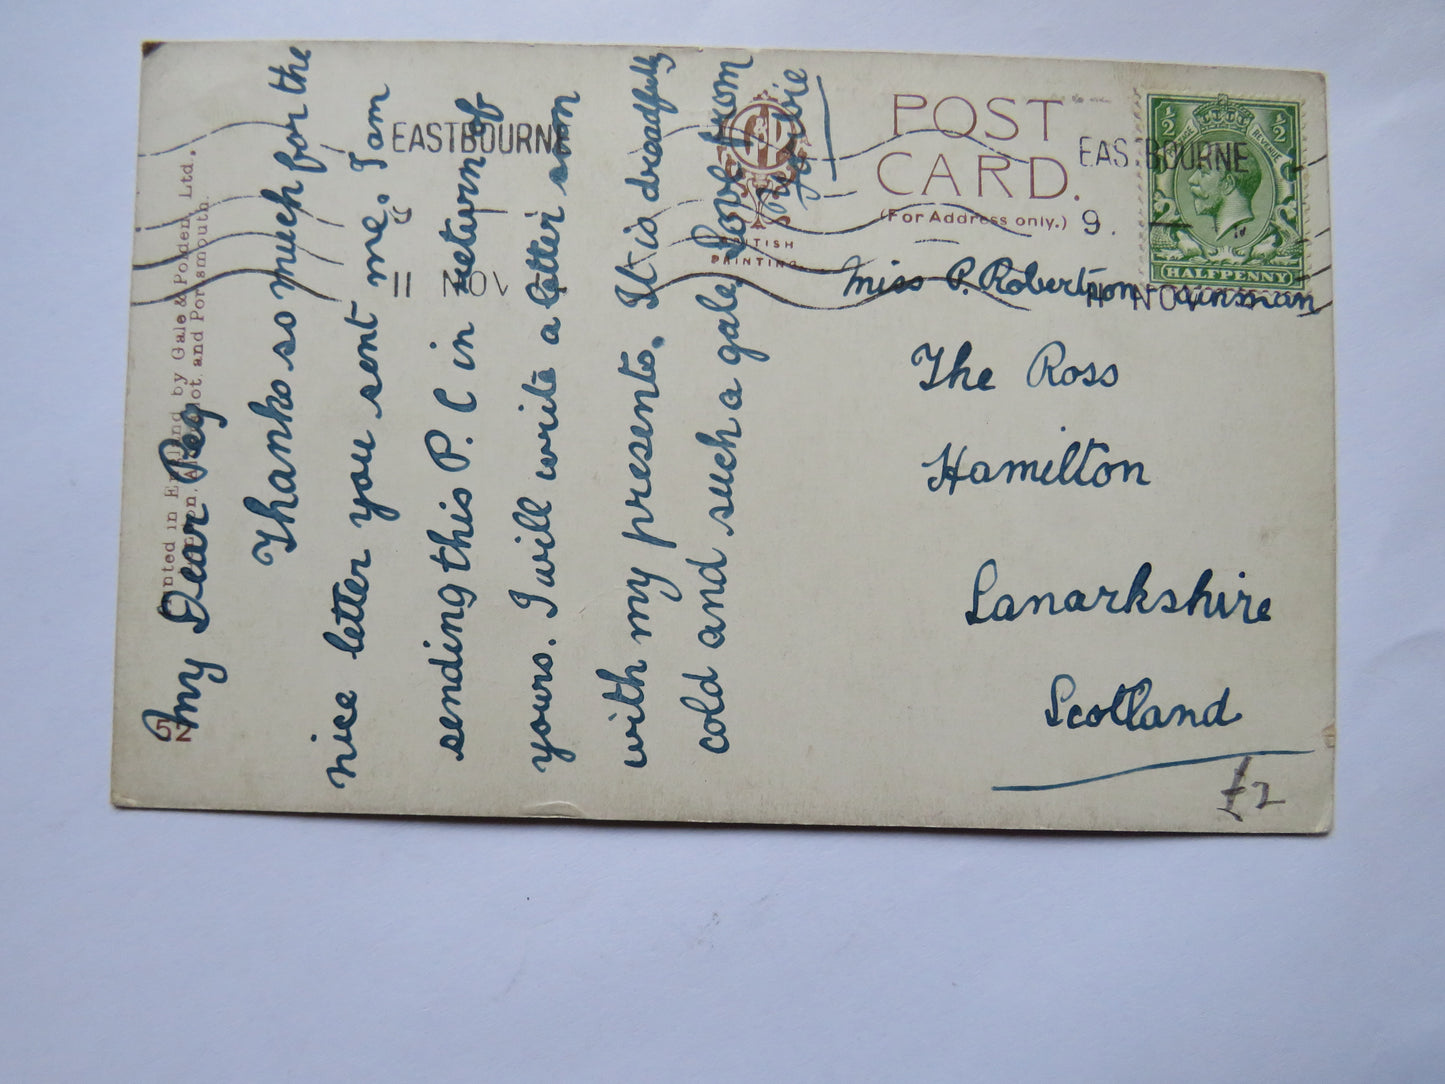 My Dear Peg
Thanks so much for the
nice letter you sent me. I am
sending this P. C in return of
yours. I will write a letter soon
with my presents. It is dreadfully
cold and such a gale, Love from
POST
CARD.
(For Address only.)
G&P
BRITISH
PRINTING
EASTBOURNE
11 NOV
EASTBOURNE
9.
11 NOV
½ ½
POSTAGE REVENUE
HALFPENNY
Miss P. Robertson
The Ross
Hamilton
Lanarkshire
Scotland
£2
Printed in England by Gale & Polden, Ltd.,
London, Aldershot, and Portsmouth.